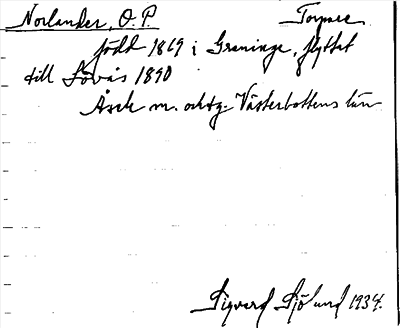 Norlander, O. P. Torpare
född 1869 i Graninge, flyttat
till Lövås 1890
Åsele m. och tg. Västerbottens län
Sigvard Sjölund 1934.